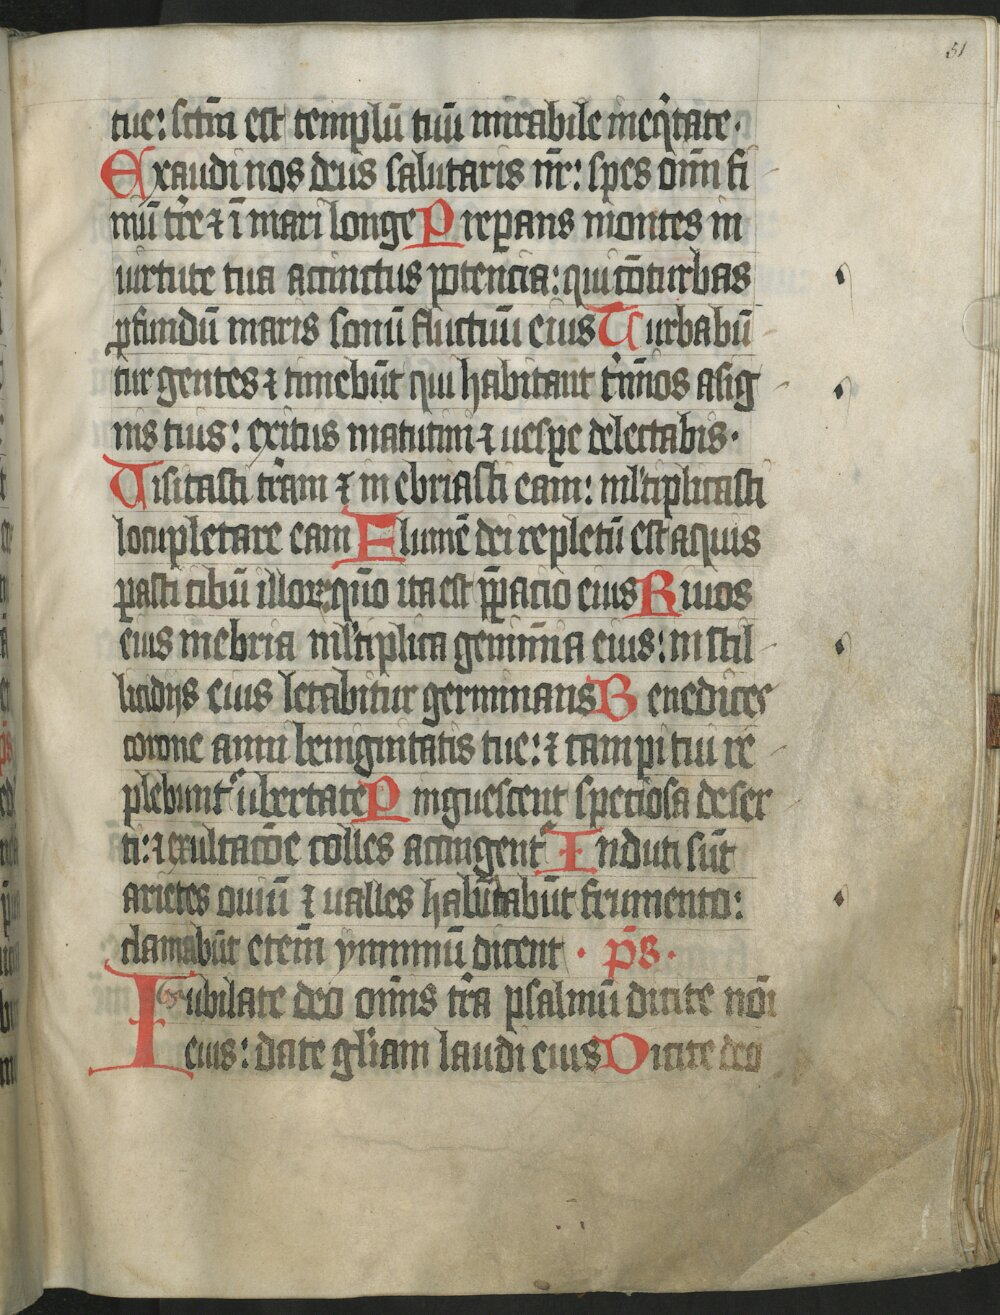 51
tue: sctm̄ est templū tuū mirabile ineq̇tate·
Exaudi nos deus salutaris nr̄: spes om̄i fi
niū tr̄e ⁊ ī mari longe Preꝑans montes in
uirtute tua accinctus potencia: qui cōturbas
ꝓfundū maris sonū fluctuū eius Turbabū
tur gentes ⁊ timebūt qui habitant t̓mīnos a sig
nis tuis: exitus matutini ⁊ uesꝑe delectabis·
Uisitasti tr̄am ⁊ inebriasti eam: ml̓tiplicasti
locupletare eam Flumē dei repletū est aquis
ꝑasti cibū illoꝝ qūo ita est p̄ꝑacio eius Riuos
eius inebria ml̓tiplica genimīa eius: in stil
licidijs eius letabitur germinans Benedices
corone anni benignitatis tue: ⁊ campi tui re
plebunt᷑ ubertate Pinguescent speciosa deser
ti: ⁊ exultacōe colles accingent᷑ Induti sūt
arietes ouiū ⁊ ualles habūdabūt frumento:
clamabūt etem̄ ymnnū dicent · p̄s·
65 Iubilate deo om̄is tr̄a psalmū dicite noī
eius: date gl̓iam laudi eius Dicite deo